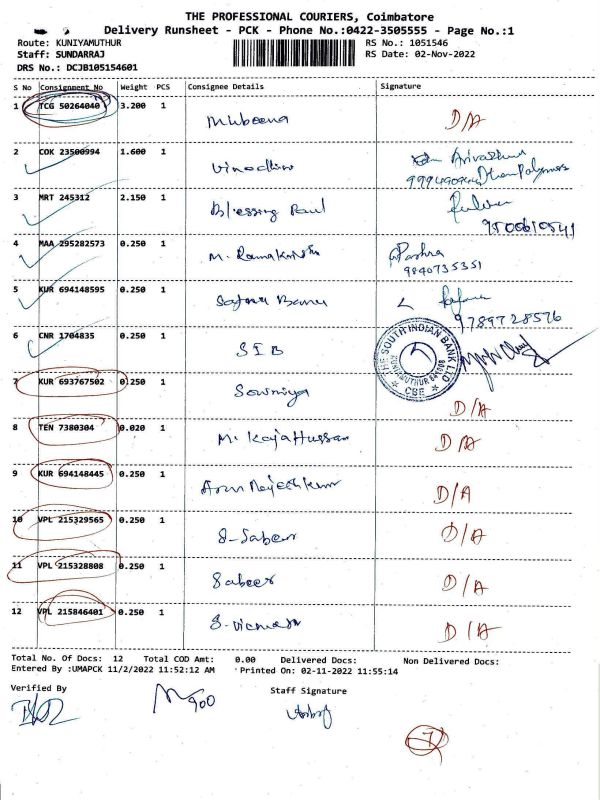 THE PROFESSIONAL COURIERS, Coimbatore
Delivery Runsheet - PCK - Phone No.:0422-3505555 - Page No.:1
Route: KUNIYAMUTHUR RS No.: 1051546
Staff: SUNDARRAJ RS Date: 02-Nov-2022
DRS No.: DCJB105154601
S No Consignment No Weight PCS Consignee Details Signature
1 TCG 50264040 3.200 1 Mubeena D/A
2 COK 23500994 1.600 1 Vinodhini
3 MRT 245312 2.150 1 Blessing Paul
9500610541
4 MAA 295282573 0.250 1 M. Ramakrishn
9840735351
5 KUR 694148595 0.250 1 Banu
9789728576
6 CNR 1704835 0.250 1 SIB
THE SOUTH INDIAN BANK LTD. CBE
7 KUR 693767502 0.250 1 Sowmiya D/A
8 TEN 7380304 0.020 1 M. Kaja Hussan D/A
9 KUR 694148445 0.250 1 Arun Rajeshkumar D/A
10 VPL 215329565 0.250 1 S-Sabeer D/A
11 VPL 215328808 0.250 1 Sabeer D/A
12 VPL 215846401 0.250 1 D/A
Total No. Of Docs: 12 Total COD Amt: 0.00 Delivered Docs: Non Delivered Docs:
Entered By :UMAPCK 11/2/2022 11:52:12 AM Printed On: 02-11-2022 11:55:14
Verified By Staff Signature
900
7